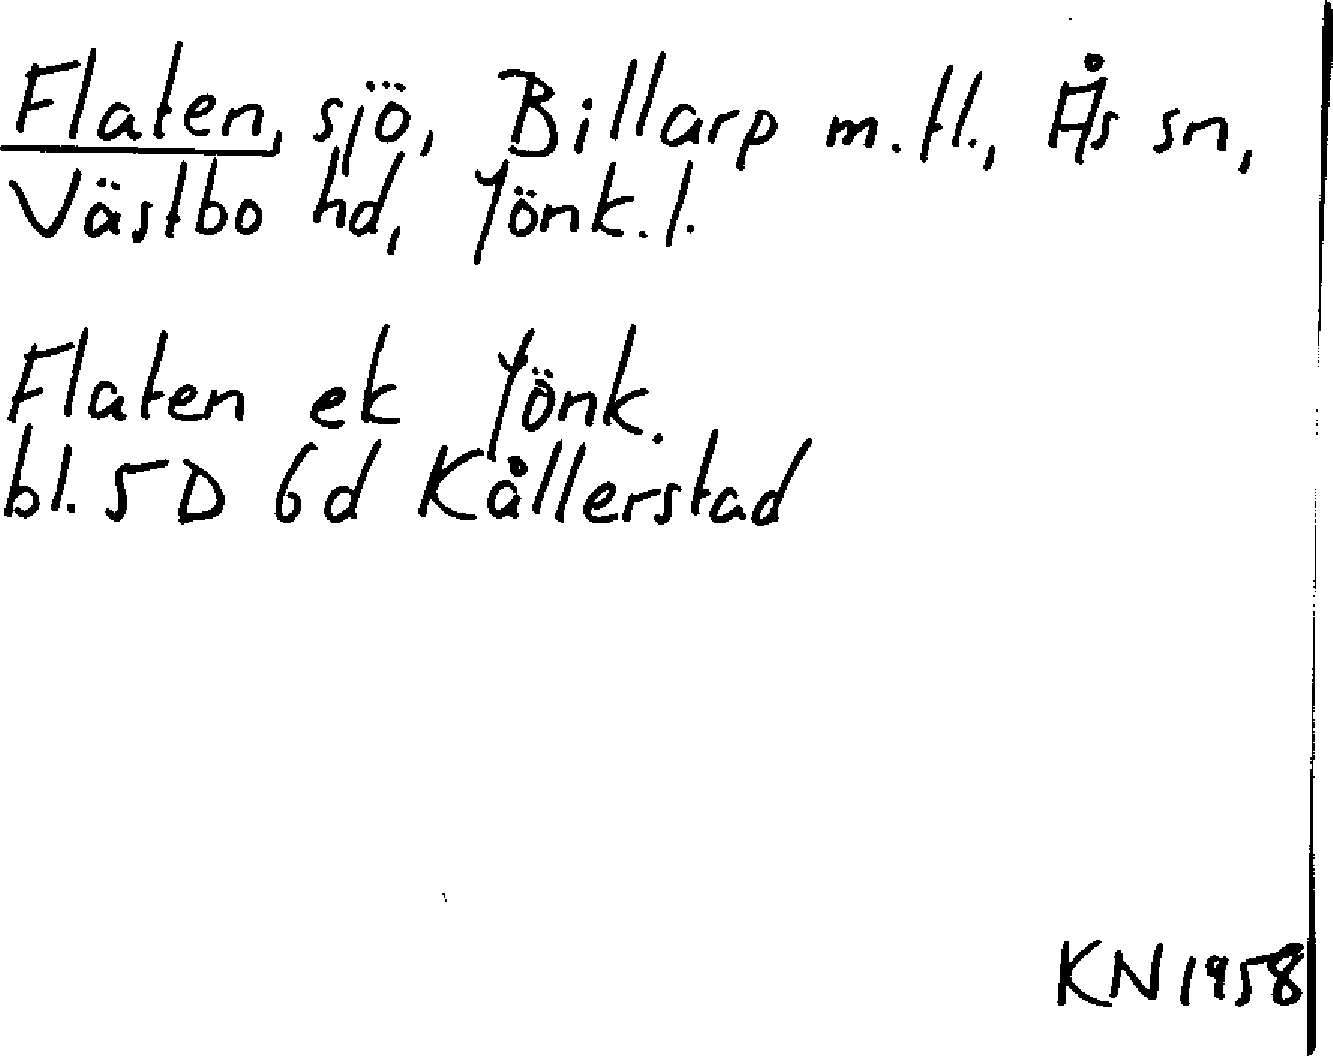 Flaten, sjö, Billarp m.fl., Ås sn,
Västbo hd, Jönk.l.
Flaten ek Jönk.
bl. 5D 6d Kållerstad
KN 1958